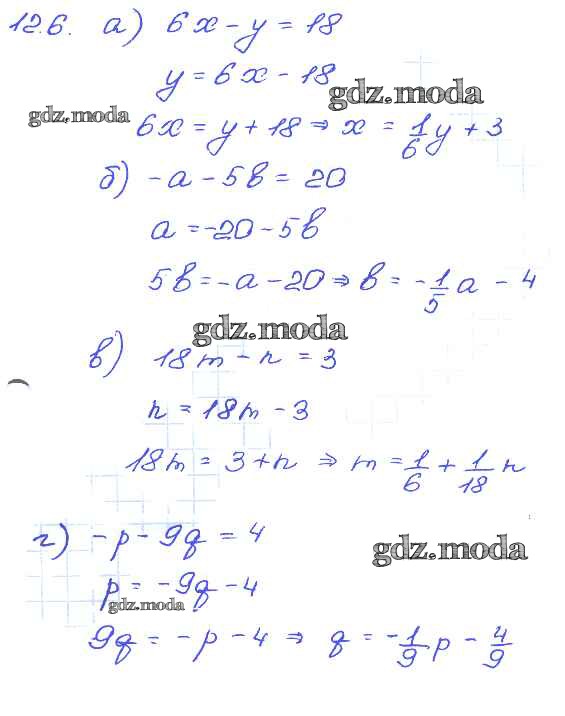 12.6. а) 6x - y = 18
y = 6x - 18
gdz.moda
gdz.moda
6x = y + 18 ⇒ x = 1/6 y + 3
б) -a - 5b = 20
a = -20 - 5b
5b = -a - 20 ⇒ b = -1/5 a - 4
gdz.moda
в) 18m - n = 3
n = 18m - 3
18m = 3 + n ⇒ m = 1/6 + 1/18 n
г) -p - 9q = 4
gdz.moda
p = -9q - 4
gdz.moda
9q = -p - 4 ⇒ q = -1/9 p - 4/9